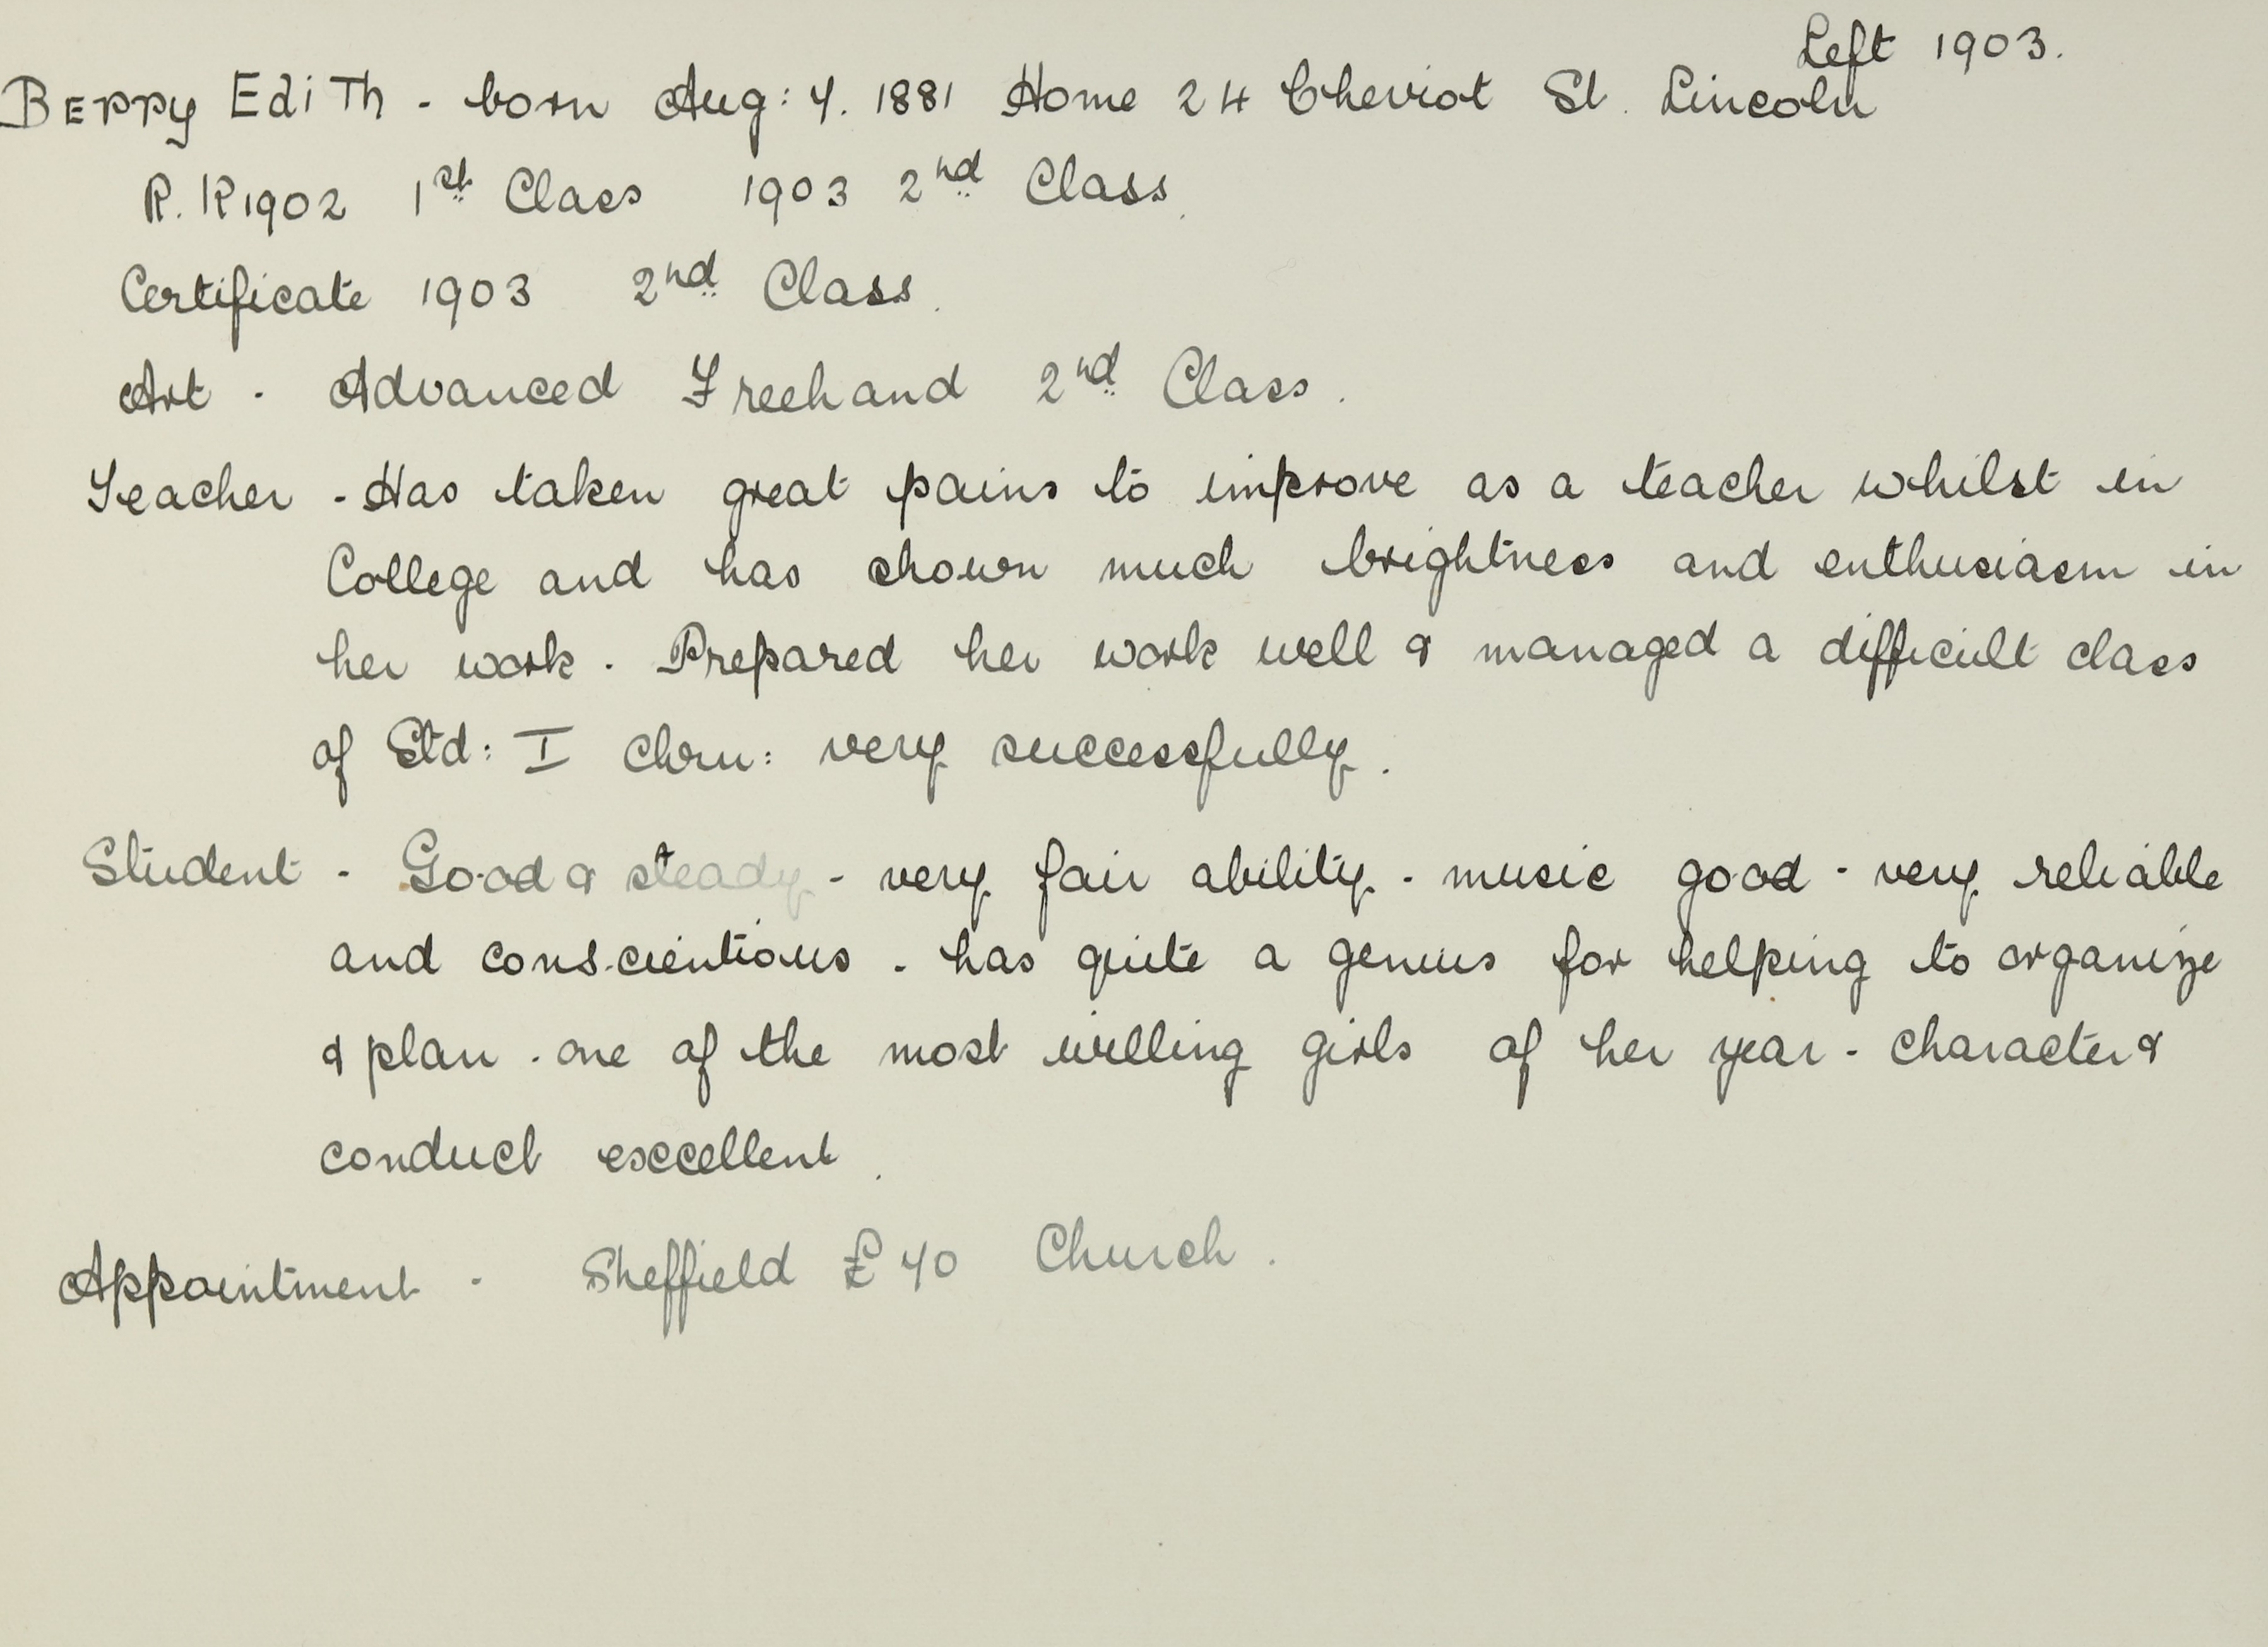 Left 1903.
BERRY EdiTh - born Aug: 4. 1881 Home 24 Cheviot St. Lincoln
R. K 1902 1st Class 1903 2nd Class.
Certificate 1903 2nd Class.
Art - Advanced Freehand 2nd Class.
Teacher - Has taken great pains to improve as a teacher whilst in
College and has shown much brightness and enthusiasm in
her work. Prepared her work well & managed a difficult class
of Std: I Chn: very successfully.
Student - Good & steady - very fair ability - music good - very reliable
and conscientious - has quite a genius for helping to organize
& plan - one of the most willing girls of her year - character &
conduct excellent.
Appointment - Sheffield £40 Church.